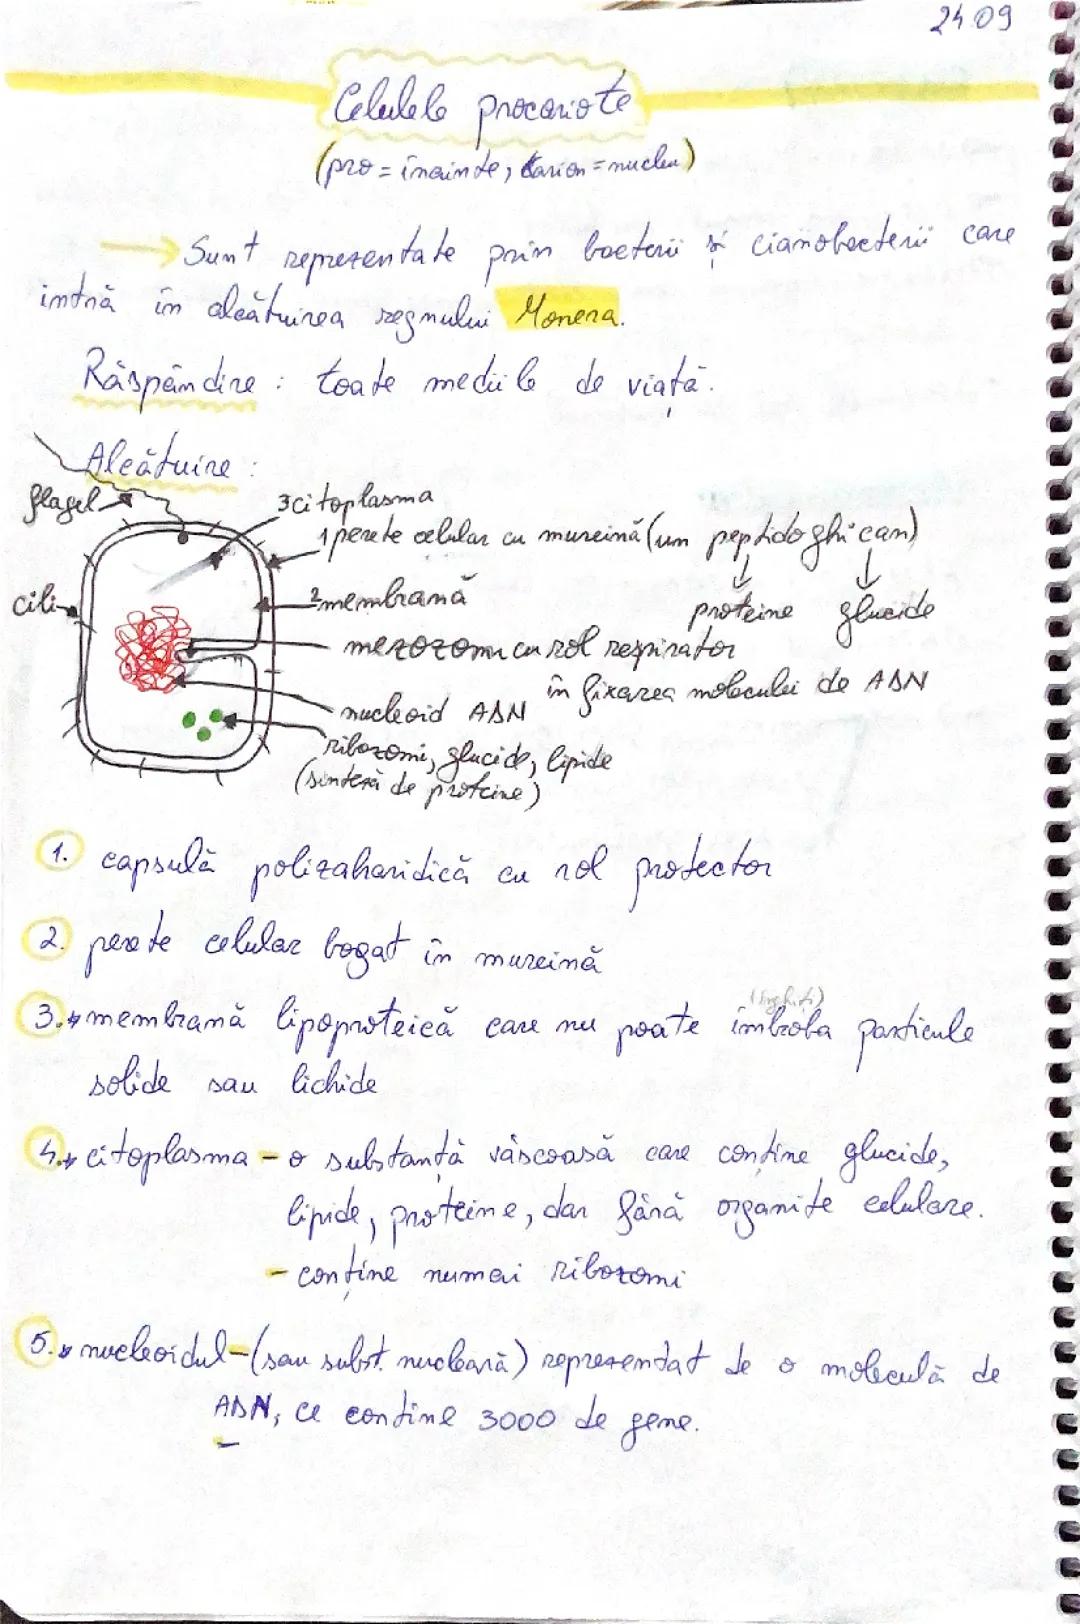 24 09
Celulele procariote
(pro = înainte, karion = nucleu)
Sunt reprezentate prin bacterii și cianobacterii care
intră în alcătuirea regnului Monera.
Răspândire : toate mediile de viață.
Alcătuire :
flagel
3 citoplasma
1 perete celular cu mureină (un peptidoglican)
cili
2 membrană
proteine glucide
mezozomi cu rol respirator
în fixarea moleculei de ADN
nucleoid ADN
ribozomi, glucide, lipide
(sinteză de proteine)
1. capsulă polizaharidică cu rol protector
2. perete celular bogat în mureină
(înghiți)
3. membrană lipoproteică care nu poate îmbroba particule
solide sau lichide
4. citoplasma - o substanță vâscoasă care conține glucide,
lipide, proteine, dar fără organite celulare.
- conține numai ribozomi
5. nucleoidul - (sau subst. nucleară) reprezentat de o moleculă de
ADN, ce conține 3000 de gene.